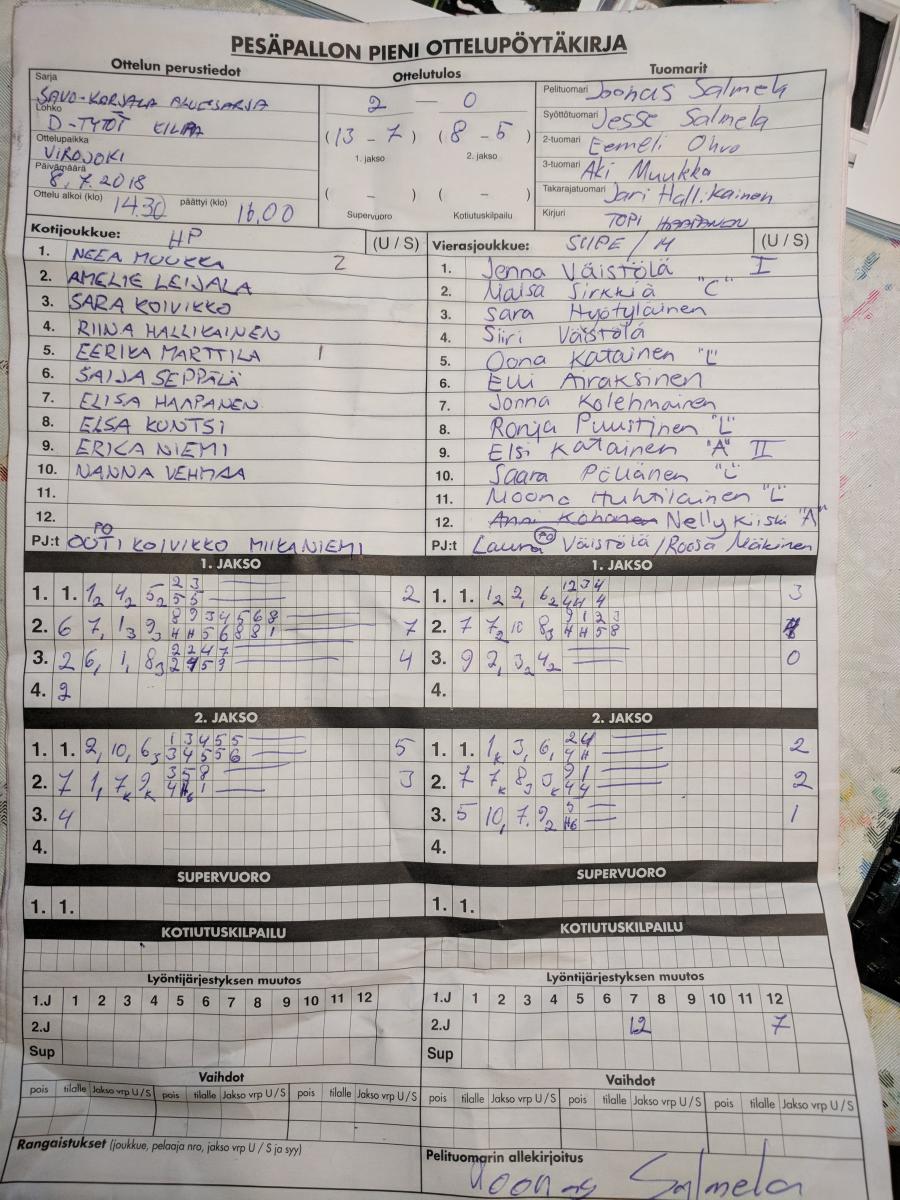 PESÄPALLON PIENI OTTELUPÖYTÄKIRJA
Ottelun perustiedot Ottelutulos Tuomarit
Sarja SAVO-KARJALA ALUESARJA
Lohko D-TYTÖT KILPA
Ottelupaikka VIROJOKI
Päivämäärä 8.7.2018
Ottelu alkoi (klo) 14.30 päättyi (klo) 16.00
2 — 0
(13 - 7) (8 - 5)
1. jakso 2. jakso
( - ) ( - )
Supervuoro Kotiutuskilpailu
Pelituomari Joonas Salmela
Syöttötuomari Jesse Salmela
2-tuomari Eemeli Ohvo
3-tuomari Aki Muukka
Takarajatuomari Jari Hallikainen
Kirjuri TOPI HAAPANEN
Kotijoukkue: HP (U / S)
1. NEEA MUUKKA 2
2. AMELIE LEIJALA
3. SARA KOIVIKKO
4. RIINA HALLIKAINEN
5. EERIKA MARTTILA 1
6. SAIJA SEPPÄLÄ
7. ELISA HAAPANEN
8. ELSA KUNTSI
9. ERIKA NIEMI
10. NANNA VEHMAA
11.
12.
PJ:t OUTI KOIVIKKO PO MIIKA NIEMI
Vierasjoukkue: SIIPE / M (U / S)
1. Jenna Väistölä I
2. Maisa Sirkkiä "C"
3. Sara Hyötyläinen
4. Siiri Väistölä
5. Oona Katainen "L"
6. Elli Airaksinen
7. Jonna Kolehmainen
8. Ronja Puustinen "L"
9. Elsi Katainen "A" II
10. Saara Pöllänen "L"
11. Moona Huhtilainen "L"
12. Anni Kohonen Nelly Kiiski "A"
PJ:t Laura PO Väistölä / Roosa Mäkinen
1. JAKSO
1. 1. 1₂ 4₂ 5₂ 2 3 2
5 5
2. 6 7, 1₃ 9₃ 8 9 3 4 5 6 8 7
4 4 5 6 8 8 1
3. 2 6, 1, 8₃ 2 2 4 7 4
2 4 5 9
4. 2
1. JAKSO
1. 1. 1₂ 2, 6₂ 1 2 3 4 3
2. 7 7₂ 10 8₃ 9 1 2 3
4 4 5 8
3. 9 2, 3₂ 4₂ 0
4.
2. JAKSO
1. 1. 2, 10, 6₃ 1 3 4 5 5 5
3 4 5 5 6
2. 7 1, 7ₖ 9ₖ 3 5 8 3
3. 4
4.
2. JAKSO
1. 1. 1ₖ 3, 6, 2 4 2
4 4
2. 7 7ₖ 8₃ 9 1 2
4 4
3. 5 10, 7, 9₂ 5 1
4.
SUPERVUORO SUPERVUORO
1. 1. 1. 1.
KOTIUTUSKILPAILU KOTIUTUSKILPAILU
Lyöntijärjestyksen muutos Lyöntijärjestyksen muutos
1.J 1 2 3 4 5 6 7 8 9 10 11 12 1.J 1 2 3 4 5 6 7 8 9 10 11 12
2.J 2.J 12 7
Sup Sup
Vaihdot Vaihdot
pois tilalle Jakso vrp U / S pois tilalle Jakso vrp U / S pois tilalle Jakso vrp U / S pois tilalle Jakso vrp U / S pois tilalle Jakso vrp U / S pois tilalle Jakso vrp U / S
Rangaistukset (joukkue, pelaaja nro, jakso vrp U / S ja syy)
Pelituomarin allekirjoitus
Joonas Salmela